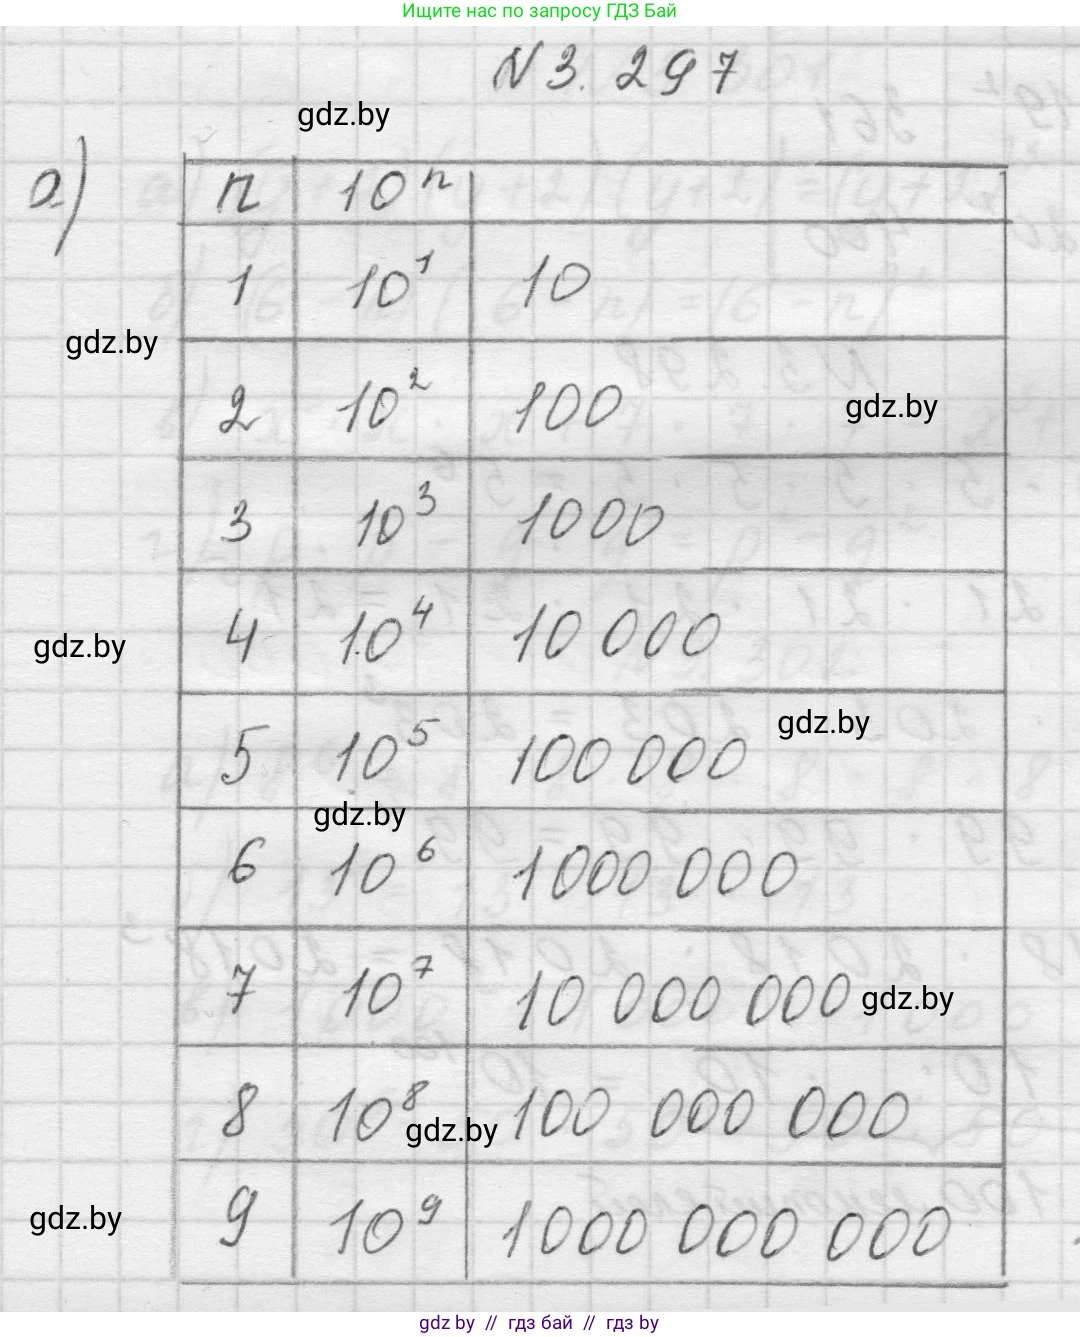 Ищите нас по запросу ГДЗ Бай
N 3. 297
gdz.by
а)
n 10^n
1 10^1 10
gdz.by
2 10^2 100
gdz.by
3 10^3 1000
4 10^4 10 000
gdz.by
5 10^5 100 000
gdz.by
gdz.by
6 10^6 1000 000
7 10^7 10 000 000
gdz.by
8 10^8 100 000 000
gdz.by
9 10^9 1000 000 000
gdz.by
gdz by // гдз бай // гдз by